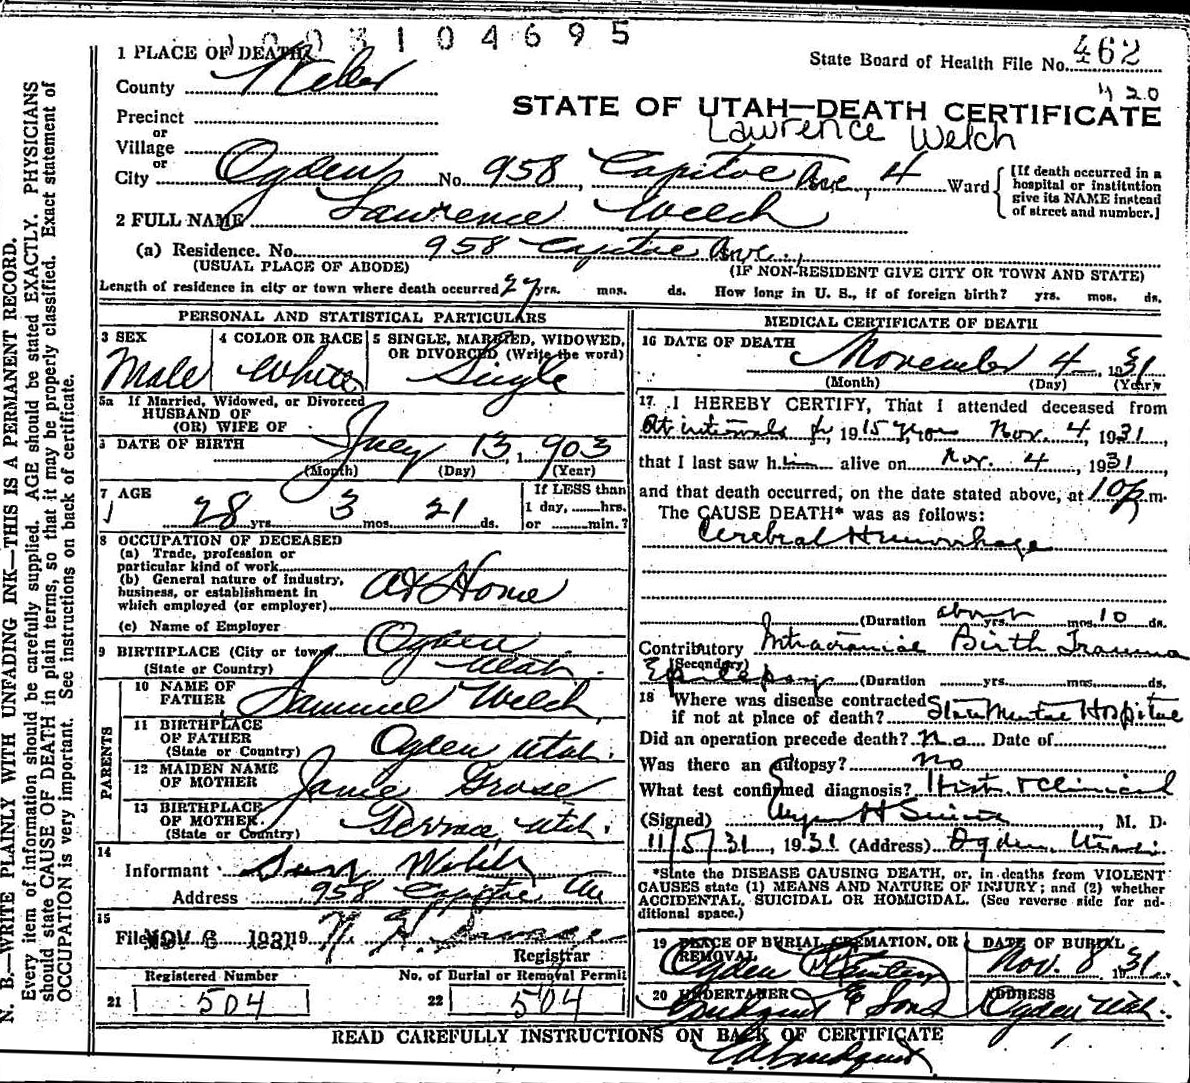 1003104695
1 PLACE OF DEATH
State Board of Health File No. 462
County Weber
420
STATE OF UTAH—DEATH CERTIFICATE
Precinct
Lawrence Welch
or
Village
or
City Ogden No. 958 Capitol Ave, 4 Ward
[If death occurred in a hospital or institution give its NAME instead of street and number.]
2 FULL NAME Lawrence Welch
(a) Residence. No. 958 Capitol Ave.,
(USUAL PLACE OF ABODE) (IF NON-RESIDENT GIVE CITY OR TOWN AND STATE)
Length of residence in city or town where death occurred 27 yrs. mos. ds. How long in U. S., if of foreign birth? yrs. mos. ds.
PERSONAL AND STATISTICAL PARTICULARS
3 SEX Male
4 COLOR OR RACE White
5 SINGLE, MARRIED, WIDOWED, OR DIVORCED (Write the word) Single
5a If Married, Widowed, or Divorced
HUSBAND OF
(OR) WIFE OF
6 DATE OF BIRTH July 13, 1903
(Month) (Day) (Year)
7 AGE
28 yrs. 3 mos. 21 ds.
If LESS than
1 day, hrs.
or min.?
8 OCCUPATION OF DECEASED
(a) Trade, profession or
particular kind of work
(b) General nature of industry,
business, or establishment in
which employed (or employer) At Home
(c) Name of Employer
9 BIRTHPLACE (City or town) Ogden
(State or Country) Utah.
PARENTS
10 NAME OF
FATHER Samuel Welch
11 BIRTHPLACE
OF FATHER Ogden Utah.
(State or Country)
12 MAIDEN NAME
OF MOTHER Janie Grose
13 BIRTHPLACE
OF MOTHER Terrace, Utah.
(State or Country)
14
Informant Welch
Address 958 Capitol Av
15
Filed NOV 6 1931 19
Registrar
Registered Number No. of Burial or Removal Permit
21 504 22 504
MEDICAL CERTIFICATE OF DEATH
16 DATE OF DEATH
November 4, 1931
(Month) (Day) (Year)
17 I HEREBY CERTIFY, That I attended deceased from
At intervals for, 19 15 years Nov. 4, 1931,
that I last saw him alive on Nov. 4, 1931
and that death occurred, on the date stated above, at 10 p.m.
The CAUSE DEATH* was as follows:
Cerebral Hemorrhage
(Duration about yrs. mos. 10 ds.
Contributory Intracranial Birth Trauma
(Secondary)
Epilepsy (Duration yrs. mos. ds.
18 Where was disease contracted
if not at place of death? State Mental Hospital
Did an operation precede death? No Date of
Was there an autopsy? No
What test confirmed diagnosis? Hist. & Clinical
(Signed) , M. D.
11/5/31, 1931 (Address) Ogden, Utah.
*State the DISEASE CAUSING DEATH, or, in deaths from VIOLENT
CAUSES state (1) MEANS AND NATURE OF INJURY; and (2) whether
ACCIDENTAL, SUICIDAL OR HOMICIDAL. (See reverse side for additional space.)
19 PLACE OF BURIAL, CREMATION, OR REMOVAL
Ogden
DATE OF BURIAL
Nov. 8 1931.
20 UNDERTAKER
Lindquist & Sons
ADDRESS
Ogden Utah.
READ CAREFULLY INSTRUCTIONS ON BACK OF CERTIFICATE
Lindquist
N. B.—WRITE PLAINLY WITH UNFADING INK—THIS IS A PERMANENT RECORD.
Every item of information should be carefully supplied. AGE should be stated EXACTLY. PHYSICIANS
should state CAUSE OF DEATH in plain terms, so that it may be properly classified. Exact statement of
OCCUPATION is very important. See instructions on back of certificate.